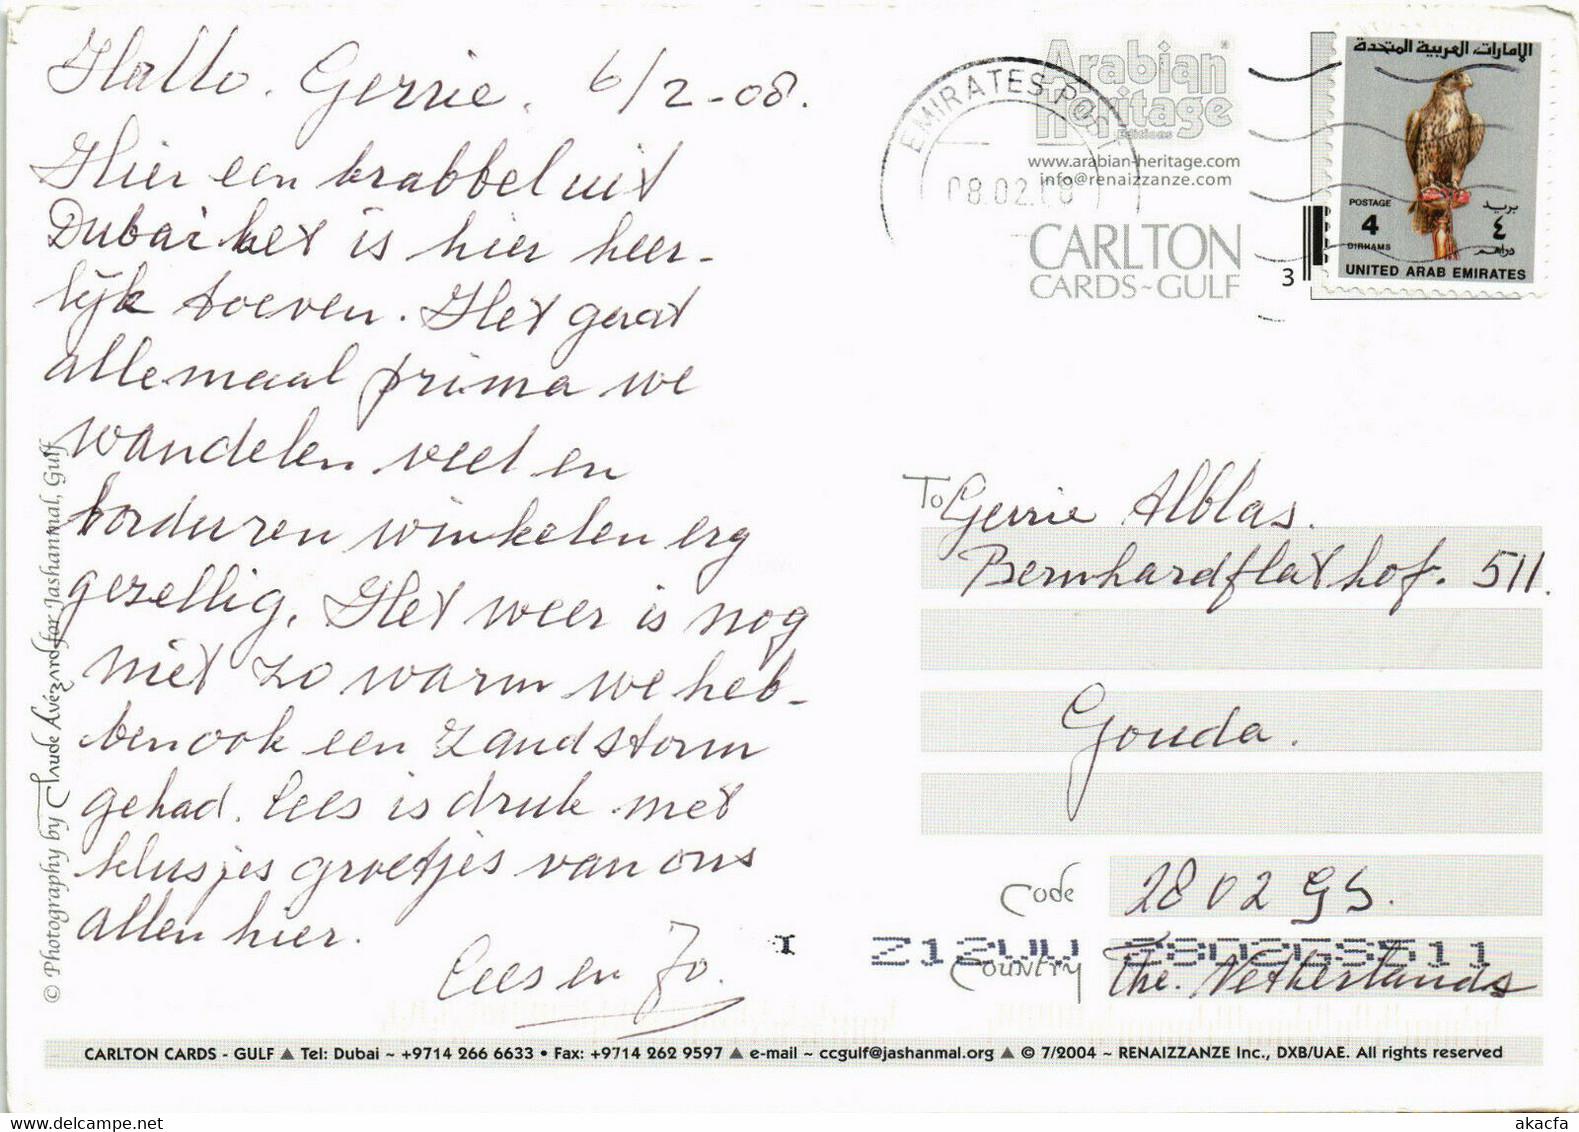 Hallo. Gerrie. 6/2-08.
Hier een krabbel uit
Dubai het is hier heer-
lijk toeven. Het gaat
allemaal prima we
wandelen veel en
borduren winkelen erg
gezellig. Het weer is nog
niet zo warm we heb-
ben ook een zandstorm
gehad. Cees is druk met
klusjes groetjes van ons
allen hier.
Cees en Jo.
© Photography by Claude Avézard for Jashanmal, Gulf
Arabian
Heritage
Editions
www.arabian-heritage.com
info@renaizzanze.com
CARLTON
CARDS~GULF
EMIRATES POST
08.02.08
3
الإمارات العربية المتحدة
POSTAGE بريد
4 ٤
DIRHAMS دراهم
UNITED ARAB EMIRATES
To Gerrie Alblas.
Bernhardflat hof. 511.
Gouda.
Code 2802 GS.
I
Country The. Netherlands
CARLTON CARDS - GULF ▲ Tel: Dubai ~ +9714 266 6633 • Fax: +9714 262 9597 ▲ e-mail ~ ccgulf@jashanmal.org ▲ © 7/2004 ~ RENAIZZANZE Inc., DXB/UAE. All rights reserved
akacfa